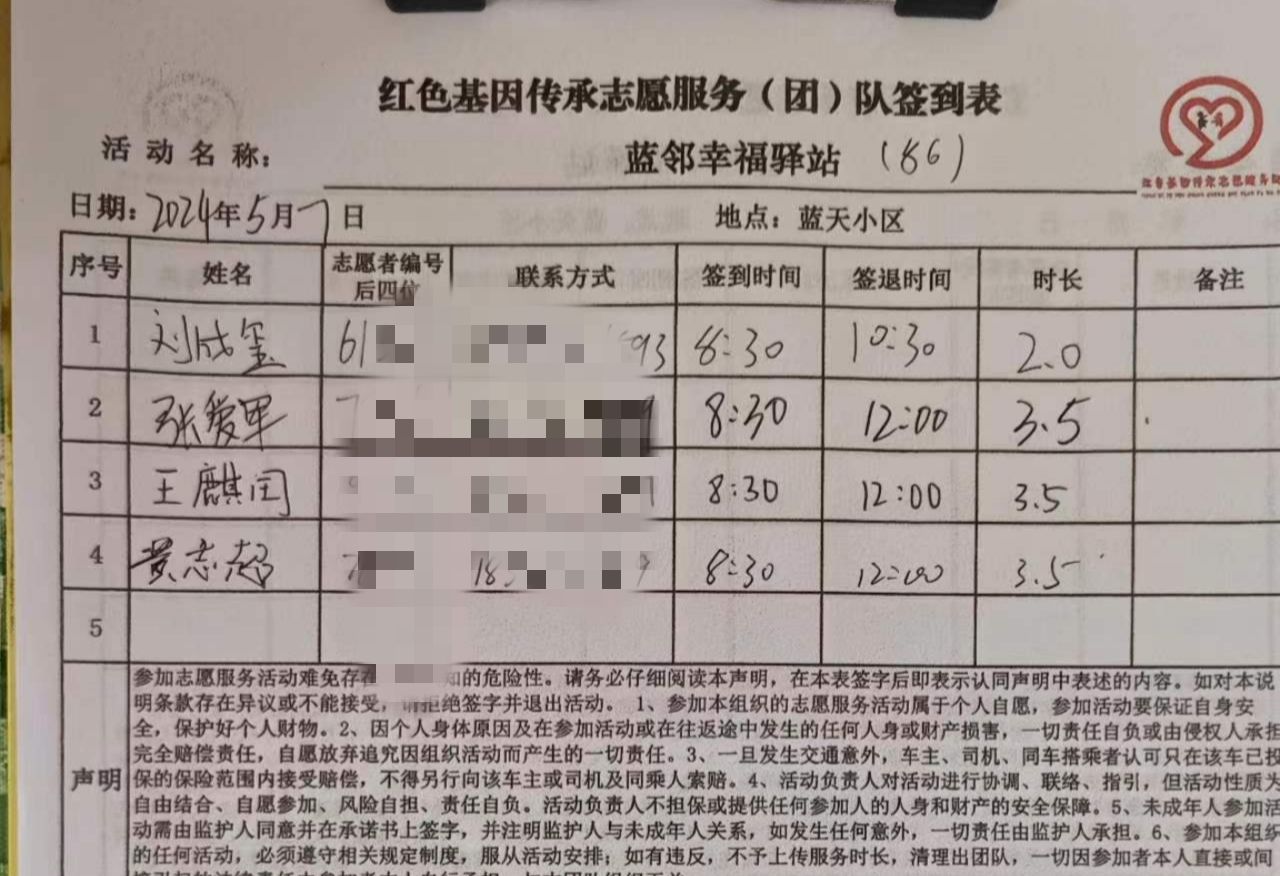 红色基因传承志愿服务（团）队签到表
活动名称： 蓝邻幸福驿站 (86)
日期：2024年5月7日 地点：蓝天小区
序号 姓名 志愿者编号后四位 联系方式 签到时间 签退时间 时长 备注
1 刘成玺 61 93 8:30 10:30 2.0
2 张爱军 7 9 8:30 12:00 3.5
3 王麒闰 8:30 12:00 3.5
4 黄志超 7 18 9 8:30 12:00 3.5
5
声明
参加志愿服务活动难免存在 知的危险性。请务必仔细阅读本声明，在本表签字后即表示认同声明中表述的内容。如对本说
明条款存在异议或不能接受，请拒绝签字并退出活动。 1、参加本组织的志愿服务活动属于个人自愿，参加活动要保证自身安
全，保护好个人财物。2、因个人身体原因及在参加活动或在往返途中发生的任何人身或财产损害，一切责任自负或由侵权人承担
完全赔偿责任，自愿放弃追究因组织活动而产生的一切责任。3、一旦发生交通意外，车主、司机、同车搭乘者认可只在该车已投
保的保险范围内接受赔偿，不得另行向该车主或司机及同乘人索赔。4、活动负责人对活动进行协调、联络、指引，但活动性质为
自由结合、自愿参加、风险自担、责任自负。活动负责人不担保或提供任何参加人的人身和财产的安全保障。5、未成年人参加活
动需由监护人同意并在承诺书上签字，并注明监护人与未成年人关系，如发生任何意外，一切责任由监护人承担。6、参加本组织
的任何活动，必须遵守相关规定制度，服从活动安排；如有违反，不予上传服务时长，清理出团队，一切因参加者本人直接或间